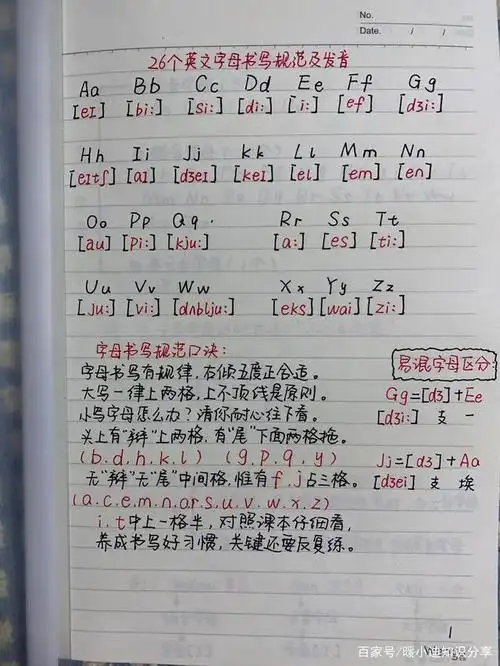 No.
Date. / /
26个英文字母书写规范及发音
Aa Bb Cc Dd Ee Ff Gg
[eɪ] [bi:] [si:] [di:] [i:] [ef] [dʒi:]
Hh Ii Jj kk Ll Mm Nn
[eɪtʃ] [aɪ] [dʒeɪ] [keɪ] [el] [em] [en]
Oo Pp Qq. Rr Ss Tt
[au] [pi:] [kju:] [a:] [es] [ti:]
Uu Vv Ww Xx Yy Zz
[ju:] [vi:] [dʌblju:] [eks] [wai] [zi:]
字母书写规范口诀:
字母书写有规律,右倾五度正合适。
大写一律上两格,上不顶线是原则。
小写字母怎么办?请你耐心往下看。
头上有“辫”上两格,有“尾”下面两格拖。
(b.d.h.k.l) (g.p.q.y)
无“辫”无“尾”中间格,惟有f.j占三格。
(a.c.e.m.n.o.r.s.u.v.w.x.z)
i.t中上一格半,对照课本仔细看,
养成书写好习惯,关键还要反复练。
易混字母区分
Gg=[dʒ]+Ee
[dʒi:] 支 一
Jj=[dʒ]+Aa
[dʒei] 支 埃
1
百家号/暖小迪知识分享